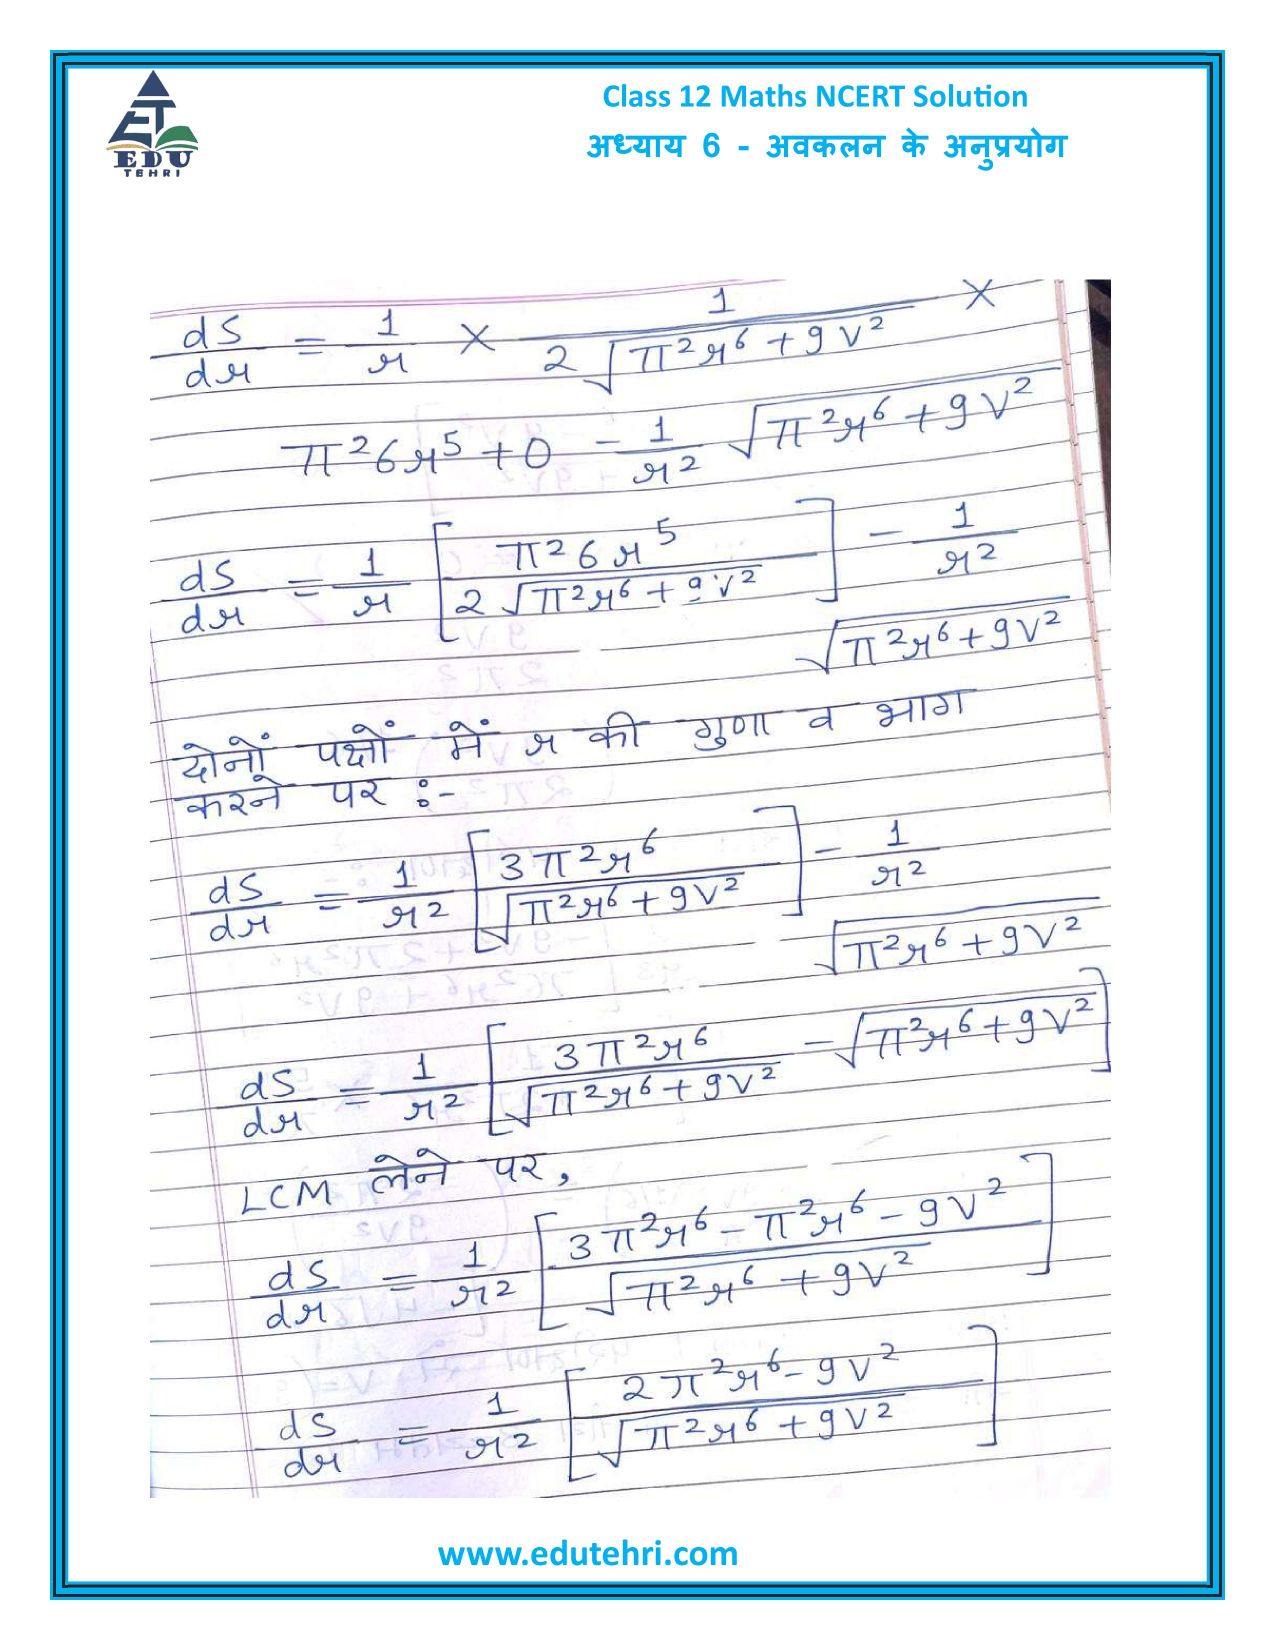 ET
EDU
TEHRI
Class 12 Maths NCERT Solution
अध्याय 6 - अवकलन के अनुप्रयोग
dS/dr = 1/r × 1/(2√(π²r⁶ + 9V²)) ×
π²6r⁵ + 0 - 1/r² √(π²r⁶ + 9V²)
dS/dr = 1/r [π²6r⁵/(2√(π²r⁶ + 9V²))] - 1/r²
√(π²r⁶ + 9V²)
दोनों पक्षों में r की गुणा व भाग
करने पर :-
dS/dr = 1/r² [3π²r⁶/√(π²r⁶ + 9V²)] - 1/r²
√(π²r⁶ + 9V²)
dS/dr = 1/r² [3π²r⁶/√(π²r⁶ + 9V²) - √(π²r⁶ + 9V²)]
LCM लेने पर,
dS/dr = 1/r² [(3π²r⁶ - π²r⁶ - 9V²)/√(π²r⁶ + 9V²)]
dS/dr = 1/r² [(2π²r⁶ - 9V²)/√(π²r⁶ + 9V²)]
www.edutehri.com